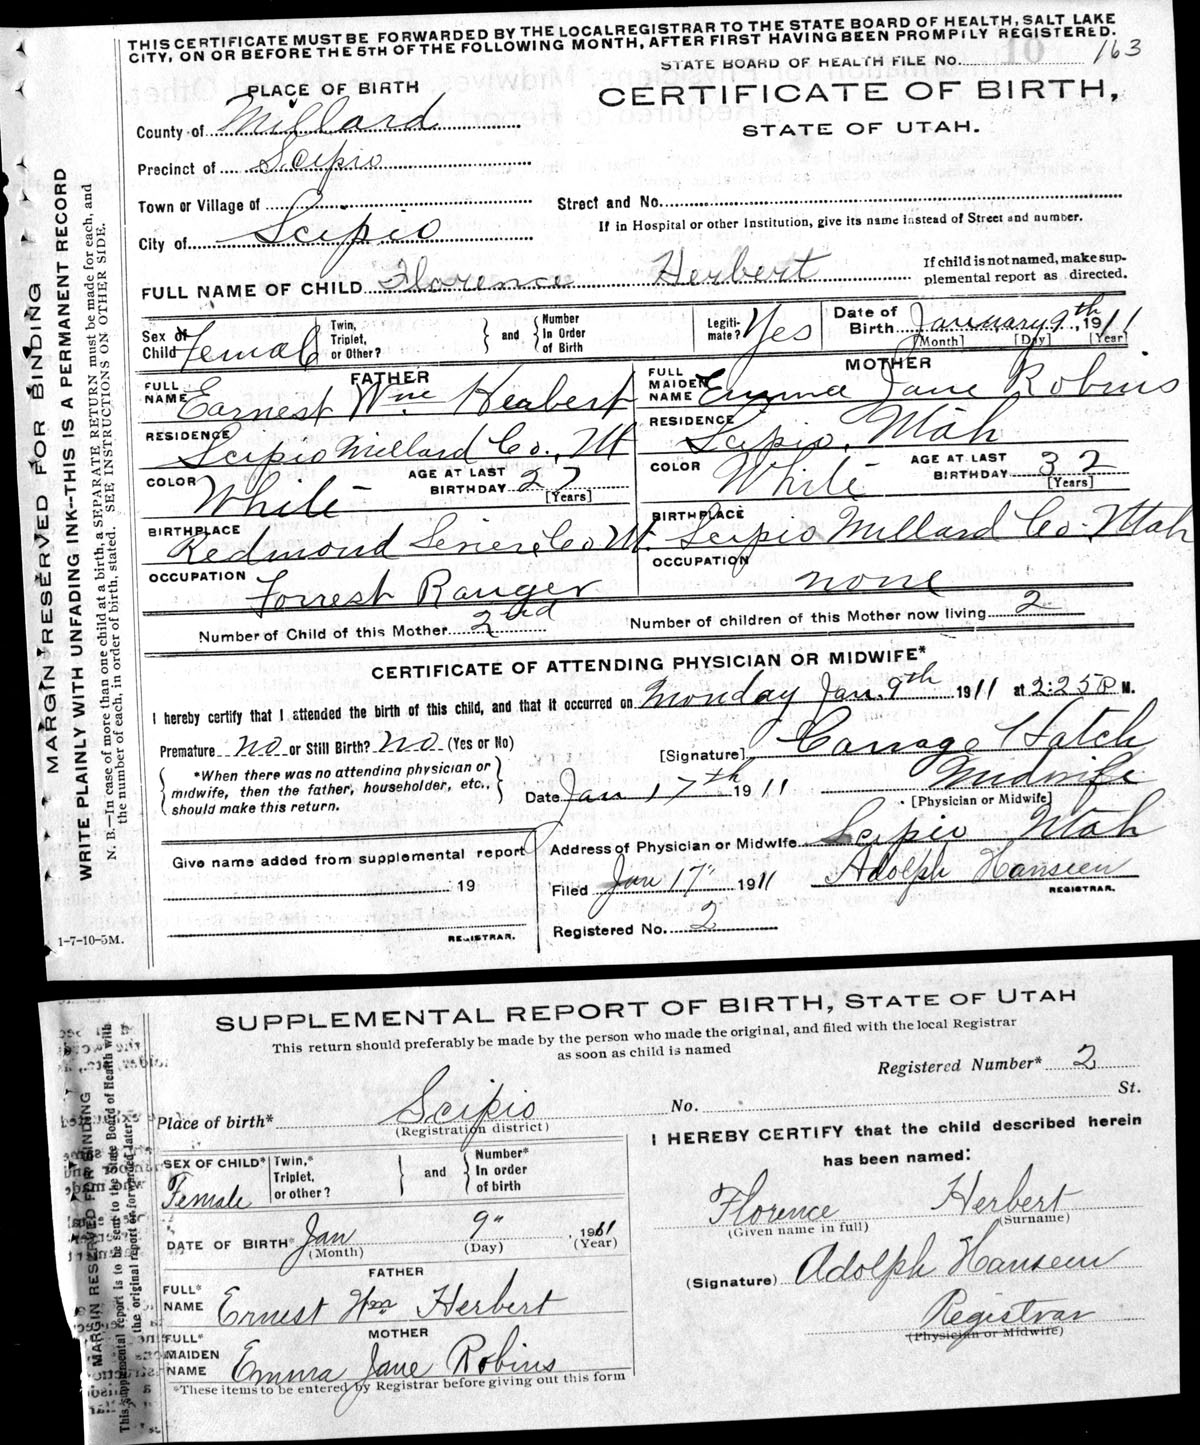 THIS CERTIFICATE MUST BE FORWARDED BY THE LOCAL REGISTRAR TO THE STATE BOARD OF HEALTH, SALT LAKE
CITY, ON OR BEFORE THE 5TH OF THE FOLLOWING MONTH, AFTER FIRST HAVING BEEN PROMPILY REGISTERED.
STATE BOARD OF HEALTH FILE NO. 163
PLACE OF BIRTH
CERTIFICATE OF BIRTH,
STATE OF UTAH.
County of Millard
Precinct of Scipio
Town or Village of
Street and No.
City of Scipio
If in Hospital or other Institution, give its name instead of Street and number.
FULL NAME OF CHILD Florence Herbert
If child is not named, make sup-
plemental report as directed.
Sex of Child Female
Twin, Triplet, or Other?
and
Number In Order of Birth
Legiti-mate? Yes
Date of Birth January 9th, 1911
[Month] [Day] [Year]
FATHER
FULL NAME Earnest Wm Herbert
RESIDENCE Scipio Millard Co., Ut
COLOR White
AGE AT LAST BIRTHDAY 27 [Years]
BIRTHPLACE Redmond Sevier Co Ut.
OCCUPATION Forrest Ranger
MOTHER
FULL MAIDEN NAME Emma Jane Robins
RESIDENCE Scipio, Utah
COLOR White
AGE AT LAST BIRTHDAY 32 [Years]
BIRTHPLACE Scipio Millard Co. Utah
OCCUPATION none
Number of Child of this Mother 2nd
Number of children of this Mother now living 2
CERTIFICATE OF ATTENDING PHYSICIAN OR MIDWIFE*
I hereby certify that I attended the birth of this child, and that it occurred on Monday Jan. 9th 1911 at 2:25 P M.
Premature no or Still Birth? No (Yes or No)
[Signature] Hatch
*When there was no attending physician or
midwife, then the father, householder, etc.,
should make this return.
Date Jan 17th 1911
Midwife
[Physician or Midwife]
Address of Physician or Midwife Scipio Utah
Give name added from supplemental report
19
REGISTRAR.
Filed Jan 17" 1911
Adolph Hanseen
REGISTRAR.
Registered No. 2
1-7-10-5M.
MARGIN RESERVED FOR BINDING
WRITE PLAINLY WITH UNFADING INK--THIS IS A PERMANENT RECORD
N. B.—In case of more than one child at a birth, a SEPARATE RETURN must be made for each, and
the number of each, in order of birth, stated. SEE INSTRUCTIONS ON OTHER SIDE.
SUPPLEMENTAL REPORT OF BIRTH, STATE OF UTAH
This return should preferably be made by the person who made the original, and filed with the local Registrar
as soon as child is named
Registered Number* 2
Place of birth* Scipio
(Registration district)
No. St.
SEX OF CHILD* Female
Twin,* Triplet, or other?
and
Number* In order of birth
DATE OF BIRTH* Jan 9" , 1911
(Month) (Day) (Year)
FATHER
FULL* NAME Ernest Wm Herbert
MOTHER
FULL* MAIDEN NAME Emma Jane Robins
*These items to be entered by Registrar before giving out this form
I HEREBY CERTIFY that the child described herein
has been named:
Florence Herbert
(Given name in full) (Surname)
(Signature) Adolph Hanseen
Registrar
(Physician or Midwife)
MARGIN RESERVED FOR BINDING
This supplemental report is to be sent to the State Board of Health with
the original report or forwarded later